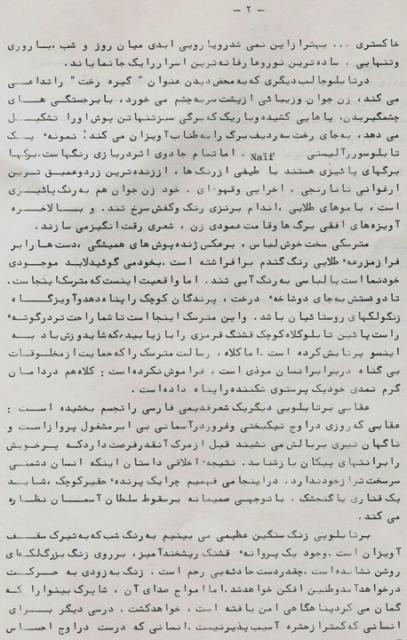 - ۲ -
خاکستری ... بهتر از این نمی شد رویارویی ابدی میان روز و شب، باروری
وتنهایی . ساده‌ترین نور و عارفانه‌ترین اسرار را یک جا نمایاند.
در تابلو جالب دیگری که به محض دیدن عنوان " گیره رخت " را تداعی
می کند، زن جوان وزیبائی ازپشت سر به چشم می خورد، با برجستگی های
چشمگیر بدن. پاهایی کشیده وباریک که برگی سبز تنها تن پوش او را تشکیل
می دهد، به جای رخت سه ردیف برگ را به طناب آویزان می کند؛ نمونهٔ یک
تابلو سوررآلیستی Naif . اما تمام جادوی اثر در بازی رنگهاست. برگها
برگهای پائیزی هستند با طیفی از رنگ ها ، از زنده‌ترین زرد و عمیق ترین
ارغوانی تا نارنجی ، اخرایی وقهوه‌ای . خود زن جوان هم به رنگ پائیزی
است ، با موهای طلایی ، اندام برنزی رنگ و کفش سرخ تند . و بالاخره
آویزهای افقی برگ ها وقامت عمودی زن ، شعری رقت انگیز می سازند.
مترسکی سخت خوش لباس ، برعکس ژنده پوش های همیشگی ، دست ها را بر
فراز مزرعهٔ طلایی رنگ گندم برافراشته است .بخودمی گوئید لابد موجودی
خودنماست با لباسی به رنگ آبی تند . اما واقعیت اینست که مترسک اینجاست.
تا دو دستش به جای دو شاخهٔ درخت ، پرندگان کوچک را پناه دهد و آویزگاه
زنگولکهای روستائیان باشد . و این مترسک اینجا است تا شما راحت تر در گوشهٔ
راست پائین تابلو کلاه کوچک قشنگ قرمزی را بازیابید، که شاید وزش باد به
اینسو پرتابش کرده است . اما کلاه ، رسالت مترسک را که حمایت از مخلوقات
بی گناه در برابر انسان موذی است ، فراموش نکرده است: کلاه هم در دامان
گرم نمدی خود یک پرستوی شکننده را پناه داده است .
عقابی بر تابلویی دیگر یک شعر قدیمی فارسی را تجسم بخشیده است :
عقابی که روزی در اوج نیکبختی وغرور در آسمانی بی ابر مشغول پرواز است و
ناگهان تیری بر بالش می نشیند قبل از مرگ آنقدر فرصت دارد که پر خویش
را بر انتهای پیکان بازشناسد . نتیجهٔ اخلاقی داستان اینکه انسان دشمنی
سرسخت تر از خود ندارد . در اینجا می فهمیم چرا یک پرندهٔ حقیر کوچک ، شاید
یک قناری یا گنجشک ، با توجهی صمیمانه بر سقوط سلطان آسمان نظاره
می کند .
بر تابلویی زنگ سنگین عظیمی می بینیم به رنگ شب که به تیرک سقف
آویزان است . وجود یک پروانهٔ قشنگ ریشخندآمیز، بر روی زنگ بزرگ لکه‌ای
روشن نشانده است .چقدر دست حادثه بی رحم است . زنگ به زودی به حرکت
درخواهد آمد و طنین افکن خواهد شد. اما امواج صدای آن ، شاپرک بینوا را که
گمان می کرد پناهگاهی امن یافته است ، خواهد کشت . درسی دیگر برای
انسانی که کمتر از حشره آسیب پذیر نیست . انسانی که درست در اوج احساس